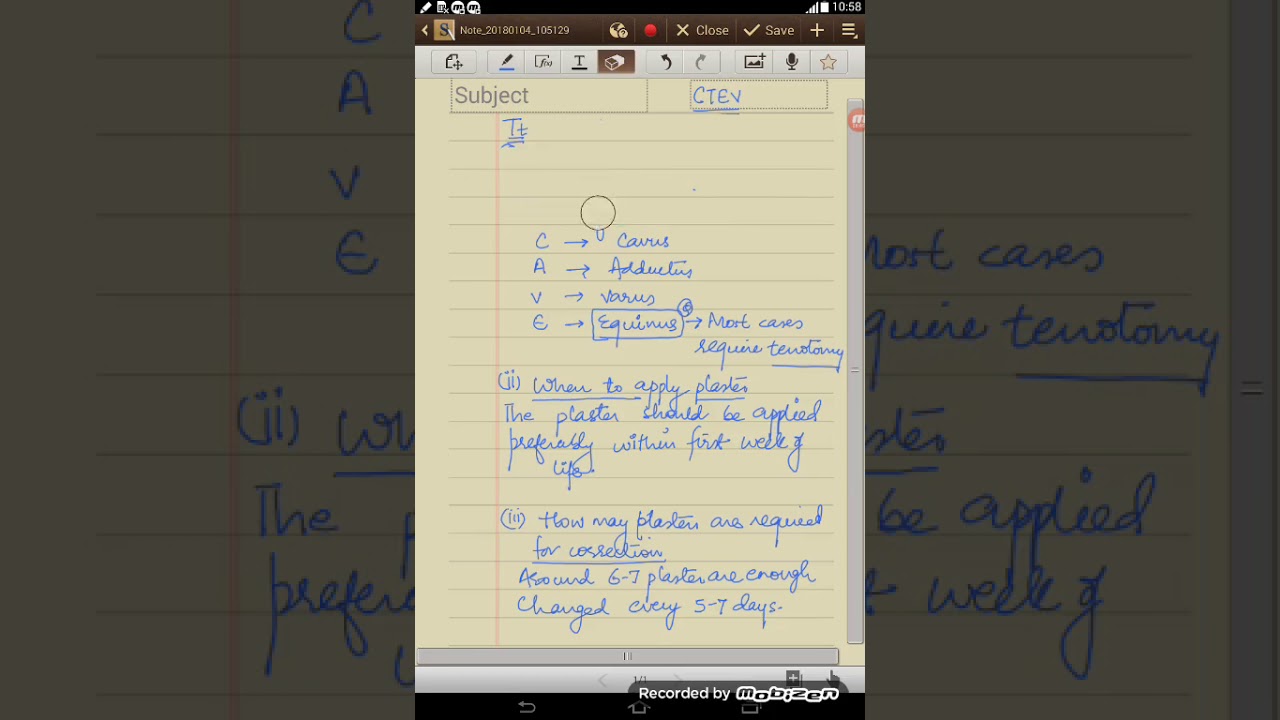 10:58
Note_20180104_105129
Close
Save
Subject
CTEV
Tt
C → Cavus
A → Adductus
V → Varus
E → Equinus → Most cases
require tenotomy
(ii) When to apply plaster
The plaster should be applied
preferably within first week of
life.
(iii) How may plasters are required
for correction
Around 6-7 plaster are enough
Changed every 5-7 days.
1/1
Recorded by mobizen